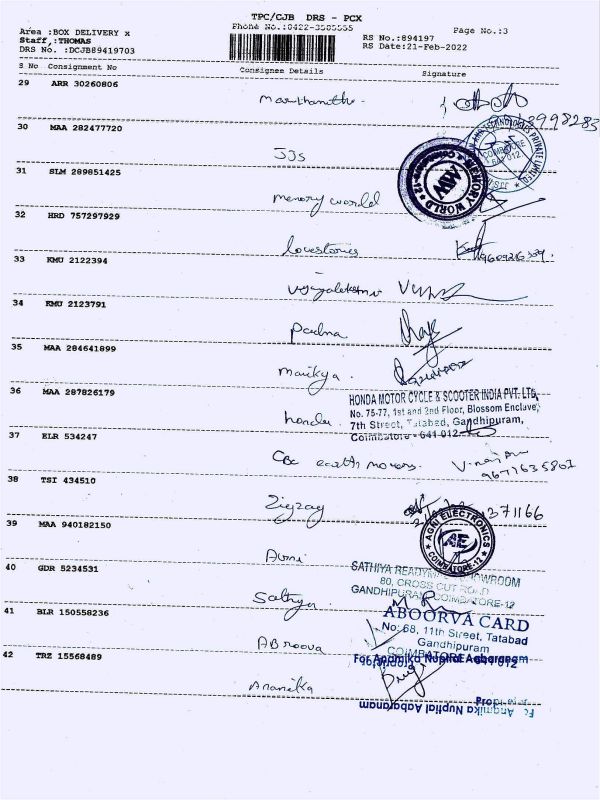 TPC/CJB DRS - PCX
Area :BOX DELIVERY x
Phone No.:0422-3505555
Page No.:3
Staff,:THOMAS
RS No.:894197
DRS No. :DCJB89419703
RS Date:21-Feb-2022
S No Consignment No Consignee Details Signature
29 ARR 30260806
30 MAA 282477720
JJs
COIMBATORE
641 012
31 SLM 289851425
memory world
MEMORY WORLD
MW
32 HRD 757297929
lovestories
33 KMU 2122394
34 KMU 2123791
Padma
35 MAA 284641899
Manikya.
36 MAA 287826179
honda
HONDA MOTOR CYCLE & SCOOTER INDIA PVT. LTD.
No. 75-77, 1st and 2nd Floor, Blossom Enclave,
7th Street, Tatabad, Gandhipuram,
Coimbatore - 641 012
37 ELR 534247
CBC earth movers.
9677635801
38 TSI 434510
Zigzag
371166
39 MAA 940182150
AGNI ELECTRONICS
AE
COIMBATORE-12
40 GDR 5234531
Sathya
SATHIYA READYMADE SHOWROOM
80, CROSS CUT ROAD
GANDHIPURAM, COIMBATORE-12
41 BLR 150558236
ABroova
ABOORVA CARD
No: 68, 11th Street, Tatabad
Gandhipuram
COIMBATORE - 641 012
42 TRZ 15568489
Anamika
For Anamika Nuptial Aabaranam
Proprietor
Fo Anamika Nuptial Aabaranam